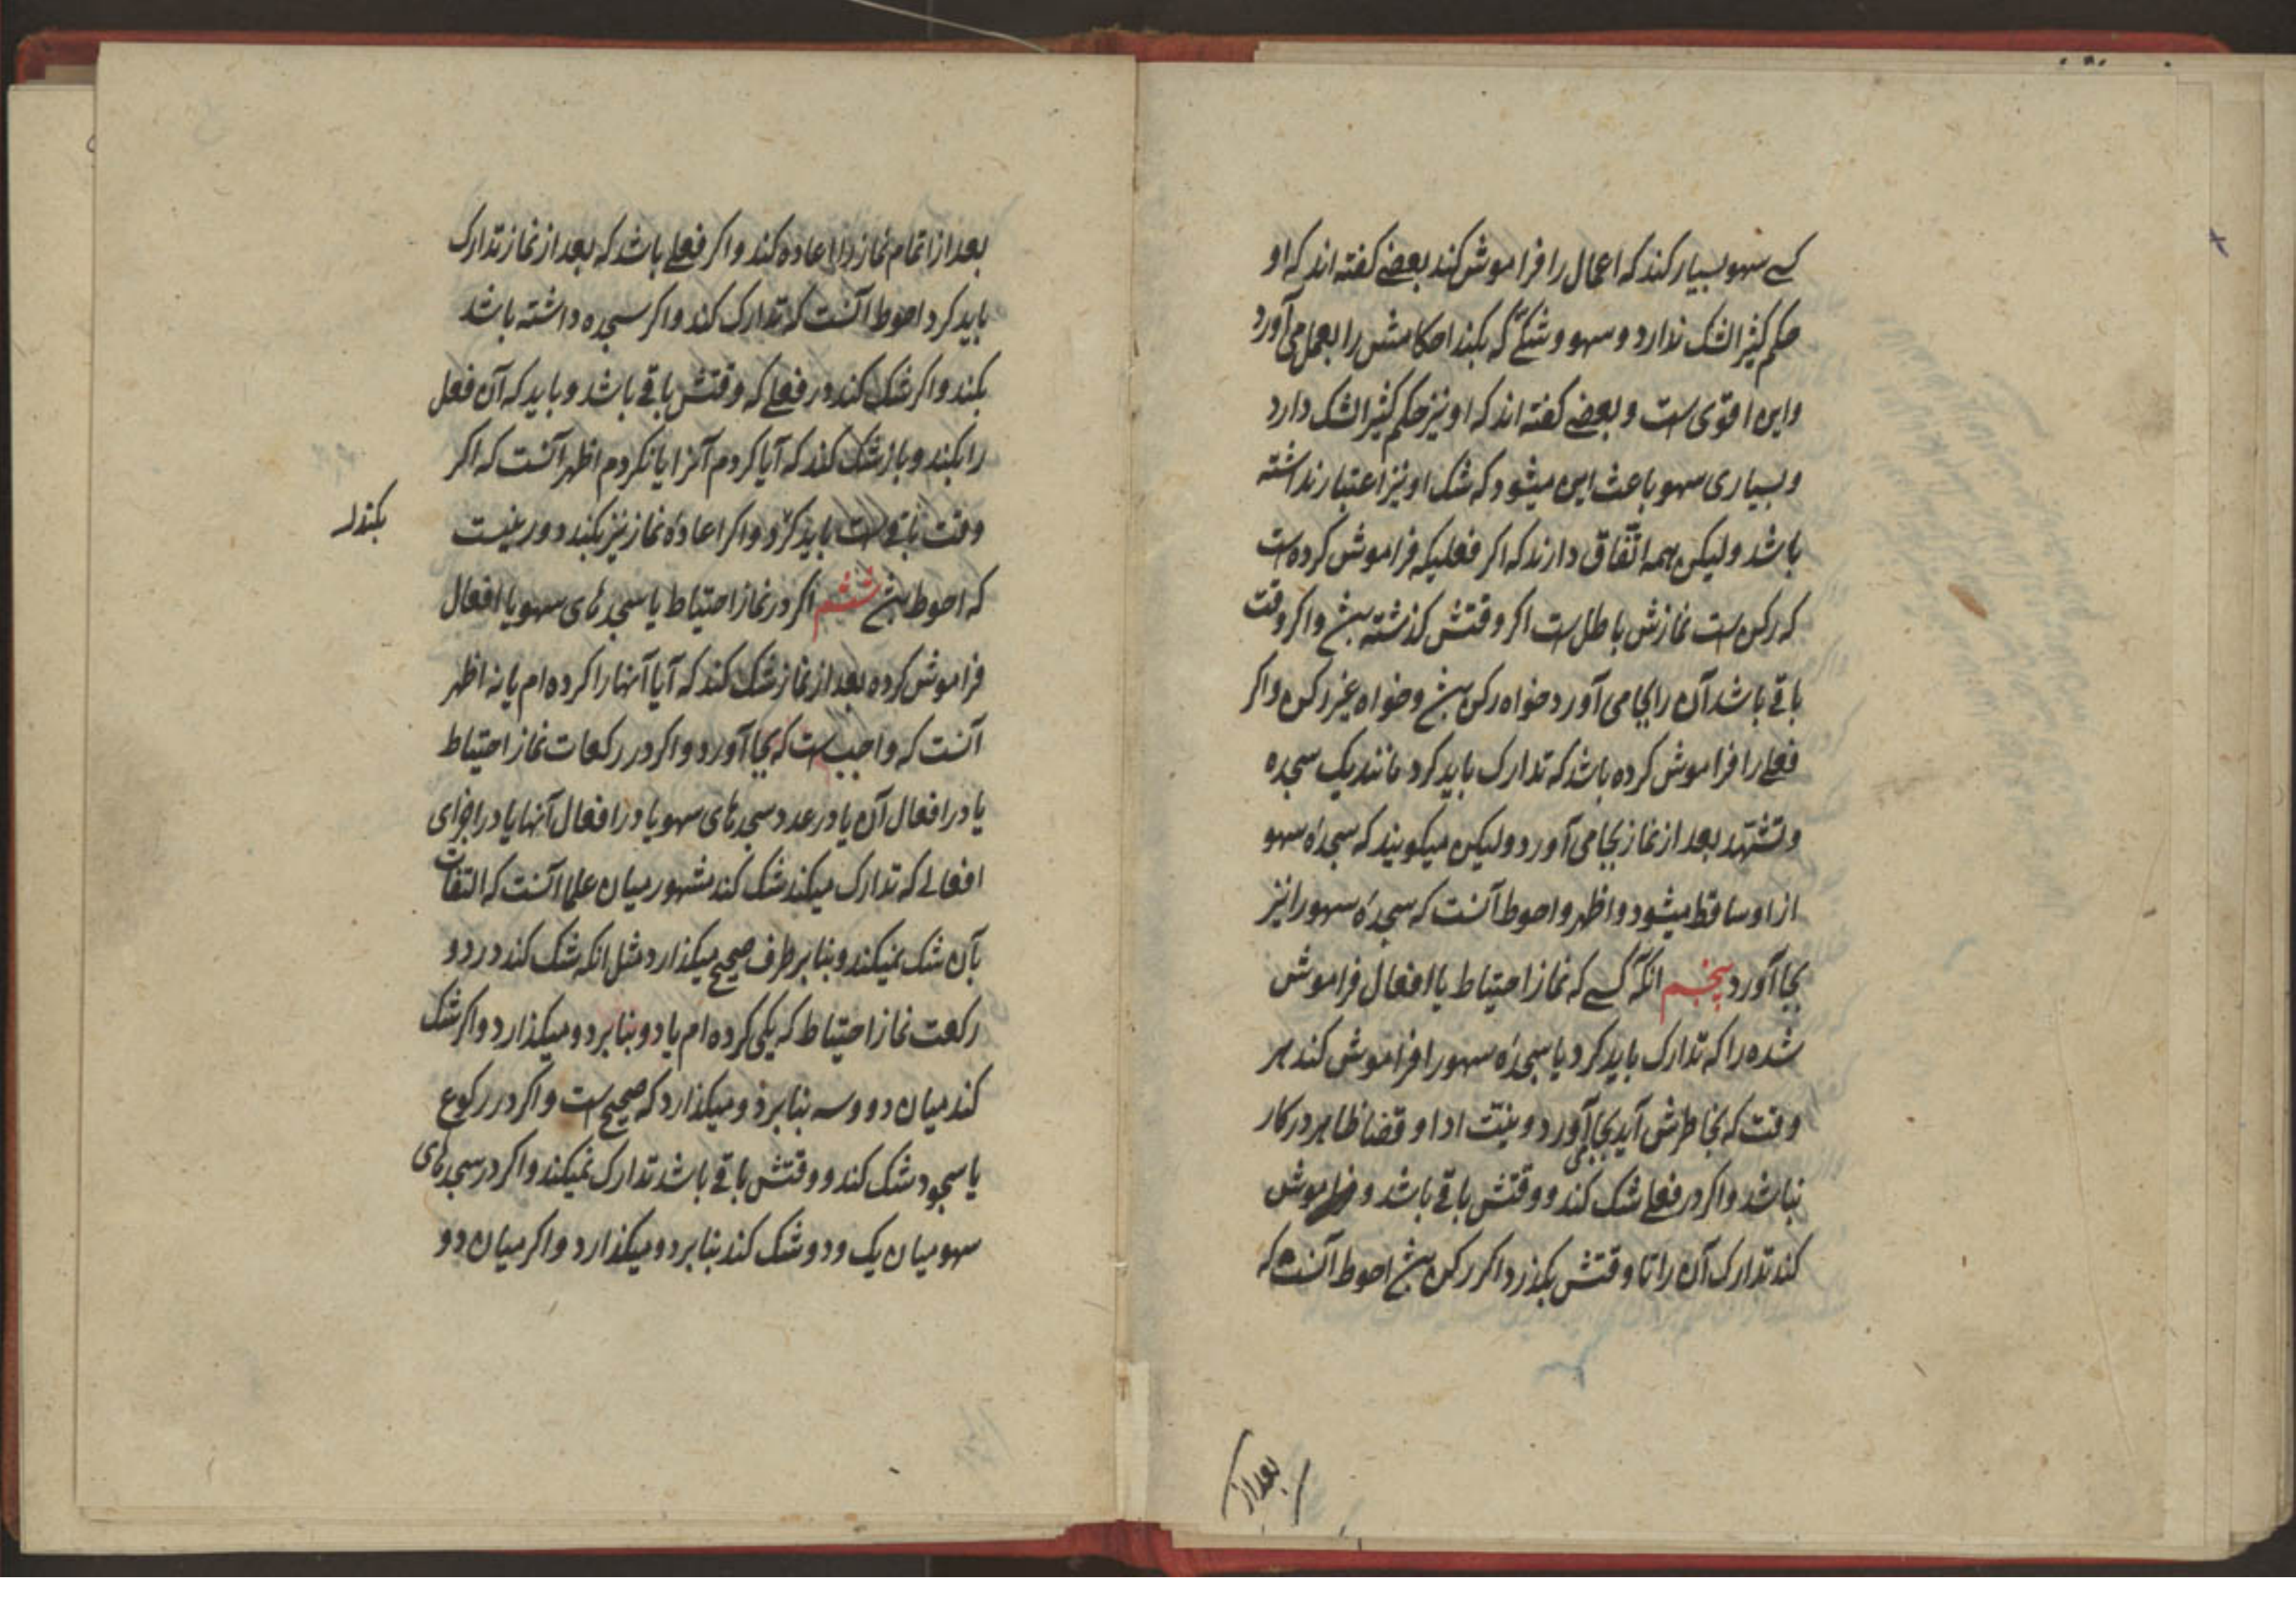 کسے سهو بسیار کند که اعمال را فراموش کند بعضے کفته اند که او
حکم کثیر الشک ندارد و سهو و شکے که بکند احکامش را بعمل می آورد
و این اقوی ست و بعضے کفته اند که او نیز حکم کثیر الشک دارد
و بسیاری سهو باعث این میشود که شک او نیز اعتبار نداشته
باشد و لیکن همه اتّفاق دارند که اکر فعلیکه فراموش کرده ست
که رکن ست نمازش باطل ست اکر وقتش کذشته بش و اکر وقت
باقے باشد آن را بجا می آورد خواه رکن بش و خواه غیر رکن و اکر
فعلے را فراموش کرده باشد که تدارک باید کرد مانند یک سجده
و تشهّد بعد از نماز بجا می آورد و لیکن میکویند که سجدهٔ سهو
از او ساقط میشود و اظهر و احوط آنست که سجدهٔ سهو را نیز
بجا آورد پنجم انکه کسے که نماز احتیاط یا افعال فراموش
شده را که تدارک باید کرد یا سجدهٔ سهو را فراموش کند هر
وقت که بخاطرش آید بجا می آورد و نیّت ادا و قضا ظاهر در کار
نباشد و اکر در فعلے شک کند و وقتش باقے باشد و فراموش
کند تدارک آن را تا وقتش بکذرد اکر رکن بش احوط آنست که
بعد از
بعد از اتمام نماز را اعاده کند و اکر فعلے باشد که بعد از نماز تدارک
باید کرد احوط آنست که تدارک کند و اکر سجده داشته باشد
بکند و اکر شک کند در فعلے که وقتش باقے باشد و باید که آن فعل
را بکند و باز شک کند که آیا کردم آنرا یا نکردم اظهر آنست که اکر
وقت باقے ست باید کرد و اکر اعادهٔ نماز نیز بکند دور نیست
بکند
که احوط بش ششم اکر در نماز احتیاط یا سجدهای سهو یا افعال
فراموش کرده بعد از نماز شک کند که آیا آنها را کرده ام یا نه اظهر
آنست که واجب ست که بجا آورد و اکر در رکعات نماز احتیاط
یا در افعال آن یا در عدد سجدهای سهو یا در افعال آنها یا در اجزای
افعالے که تدارک میکند شک کند مشهور میان علما آنست که التفات
بآن شک نمیکند و بنا بر طرف صحیح میکذارد مثل انکه شک کند در دو
رکعت نماز احتیاط که یکی کرده ام یا دو بنا بر دو میکذارد و اکر شک
کند میان دو و سه بنا بر دو میکذارد که صحیح ست و اکر در رکوع
یا سجود شک کند و وقتش باقے باشد تدارک نمیکند و اکر در سجدهای
سهو میان یک و دو شک کند بنا بر دو میکذارد و اکر میان دو